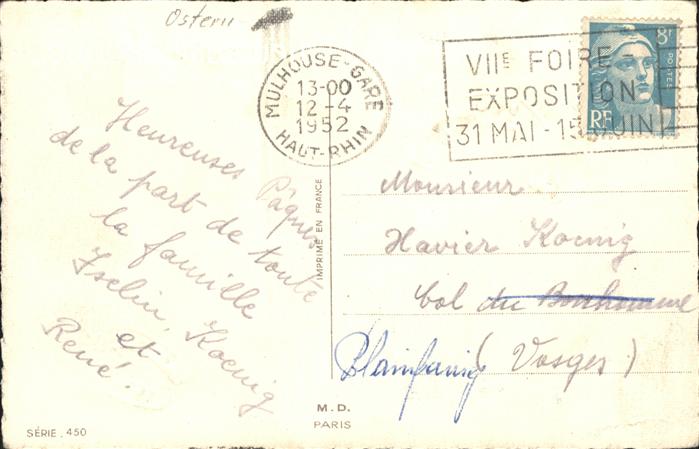 Ostern
MULHOUSE-GARE
13-00
12-4
1952
HAUT-RHIN
VIIE FOIRE-
EXPOSITION
31 MAI-15 JUIN
8F
POSTES
RF
Heureuses Pâques
de la part de toute
la famille
Iselin, Koenig
et
René.
IMPRIMÉ EN FRANCE
Monsieur
Xavier Koenig
Col du Bonhomme
(Vosges)
M. D.
PARIS
SÉRIE . 450